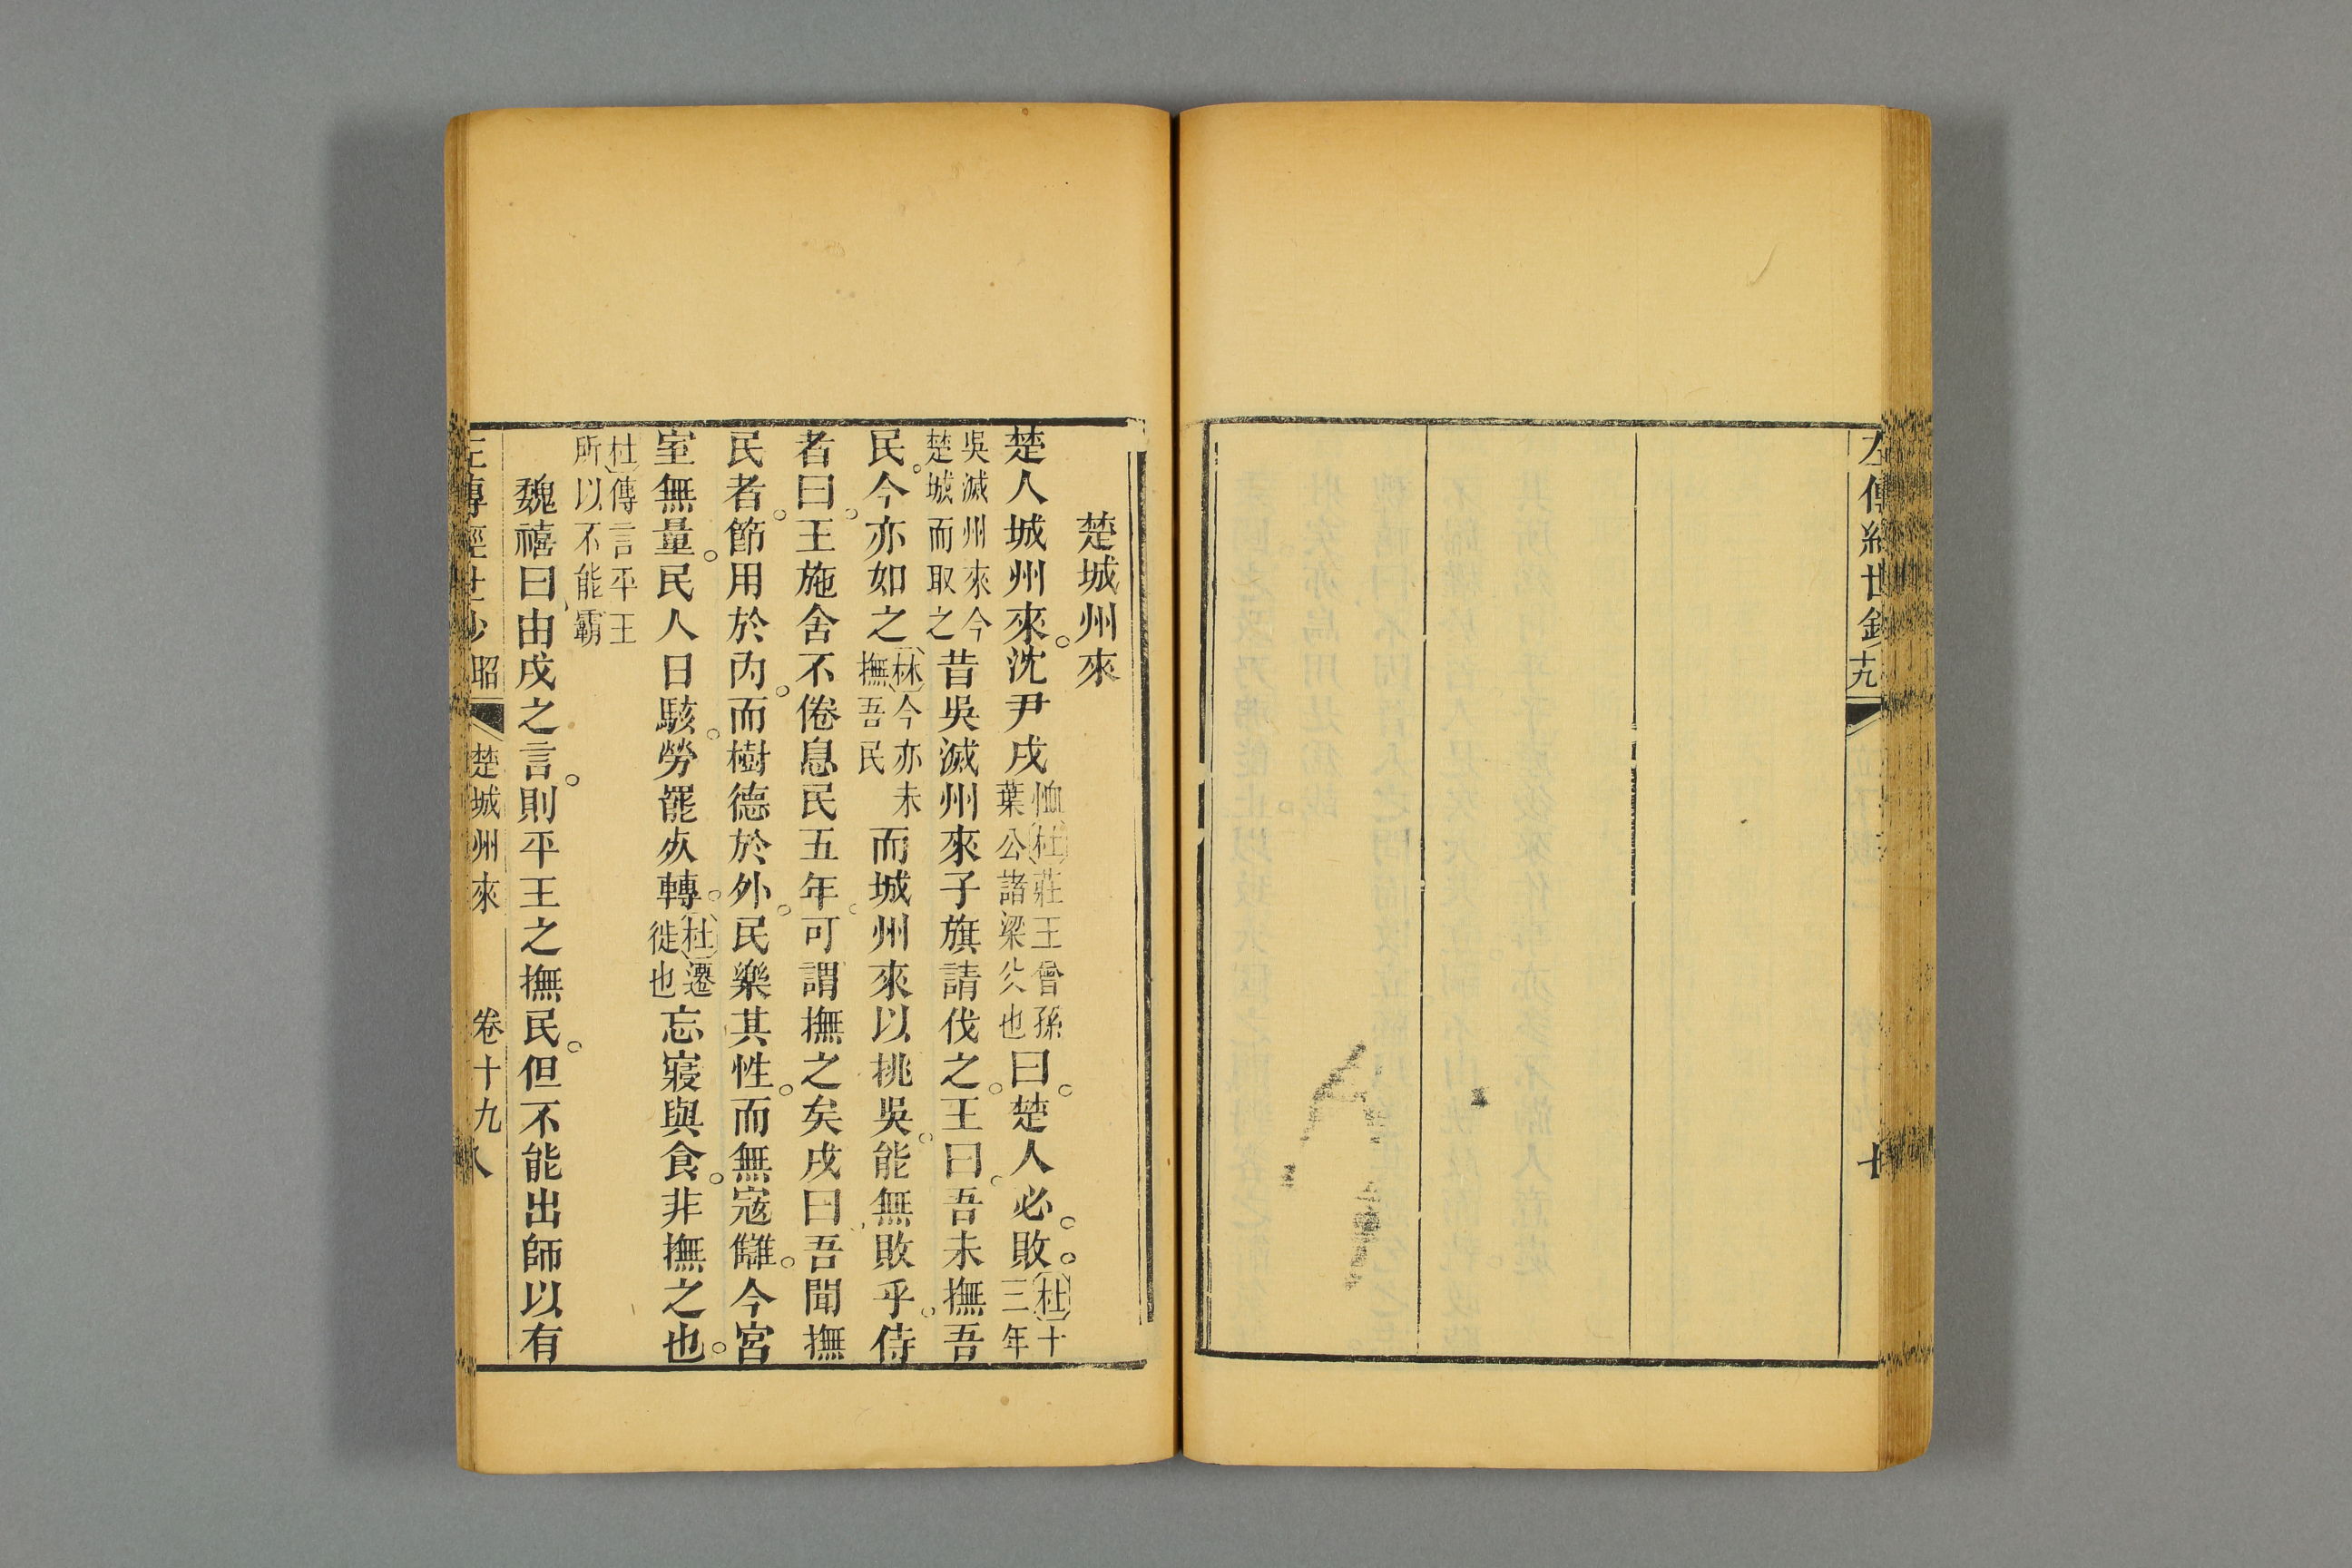 左傳經世鈔
十九
十
楚城州來
楚人城州來。沈尹戌恤杜莊王曾孫葉公諸梁父也曰。楚人必。敗。杜十三年
吳滅州來今楚城而取之昔吳滅州來子旗請伐之。王曰。吾未撫吾
民。今亦如之林今亦未撫吾民而城州來以挑吳。能無敗乎。侍
者曰。王施舍不倦息民五年。可謂撫之矣戌曰吾聞撫
民者。節用於內。而樹德於外。民樂其性。而無寇讎。今宮
室無量。民人日駭。勞罷死轉。杜遷徙也忘寢與食。非撫之也。
杜傳言平王所以不能霸
魏禧曰由戌之言。則平王之撫民。但不能出師以有
左傳經世鈔 昭 楚城州來 卷十九 八